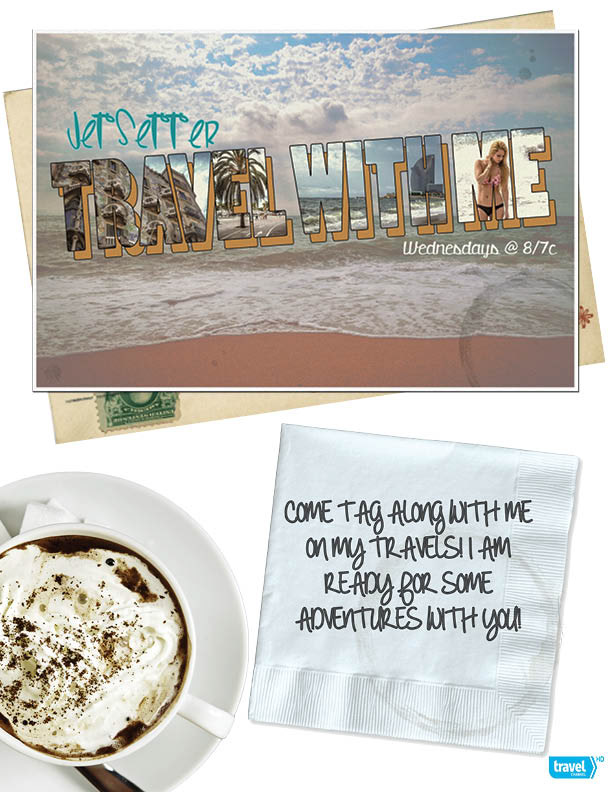 JetSetter
TRAVEL WITH ME
Wednesdays @ 8/7c
COME TAG ALONG WITH ME
ON MY TRAVELS! I AM
READY FOR SOME
ADVENTURES WITH YOU!
travel HD
CHANNEL